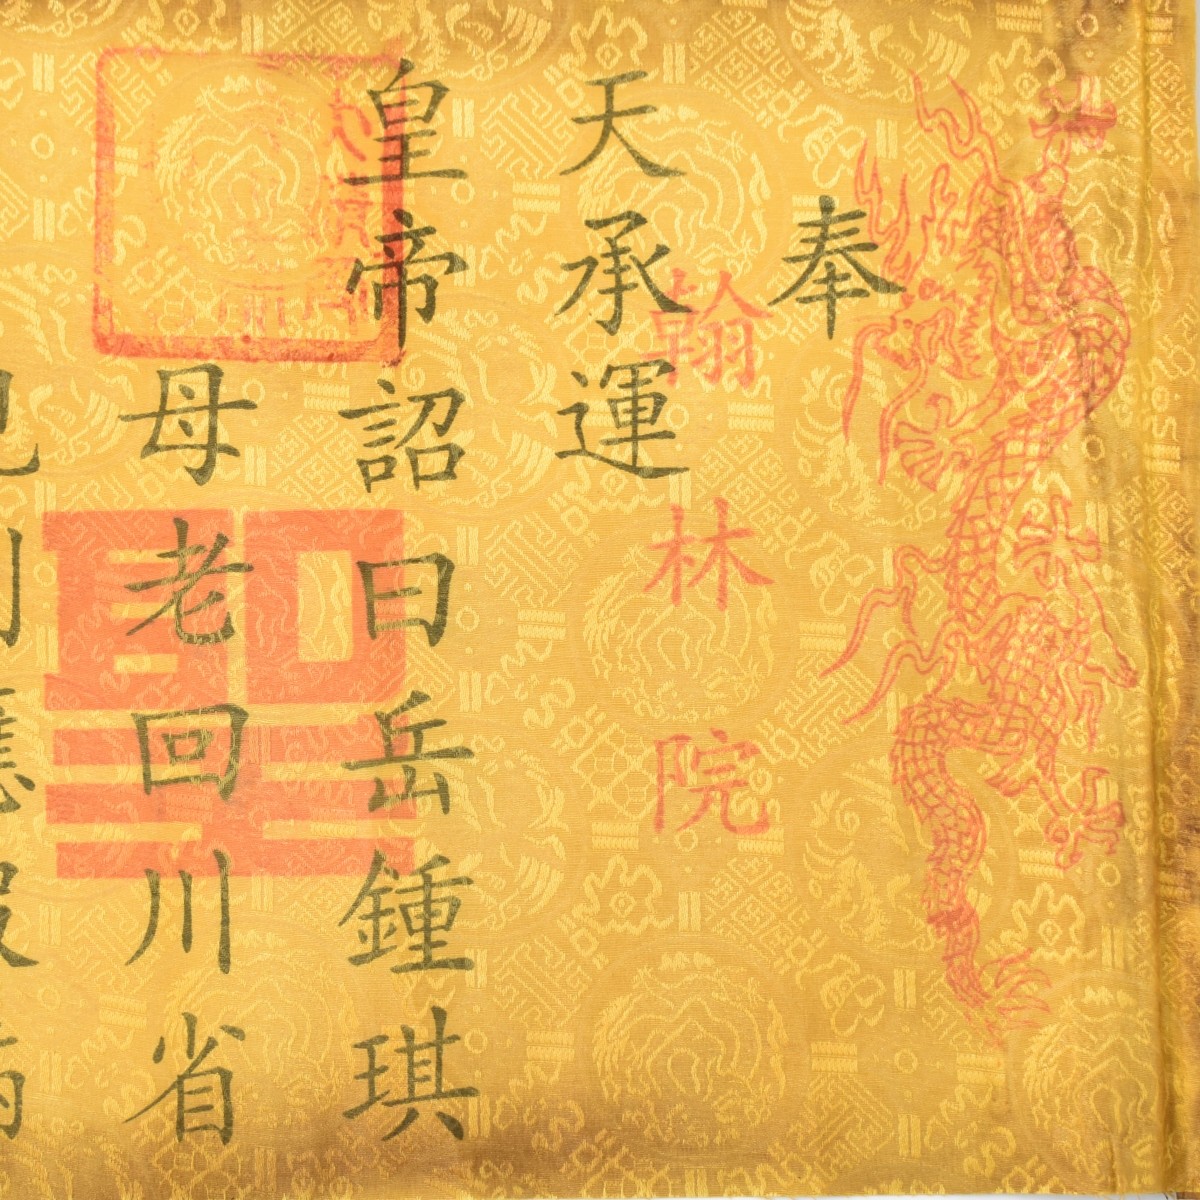 奉
天承運
皇帝詔曰岳鍾琪
母老回川省
翰林院
聖